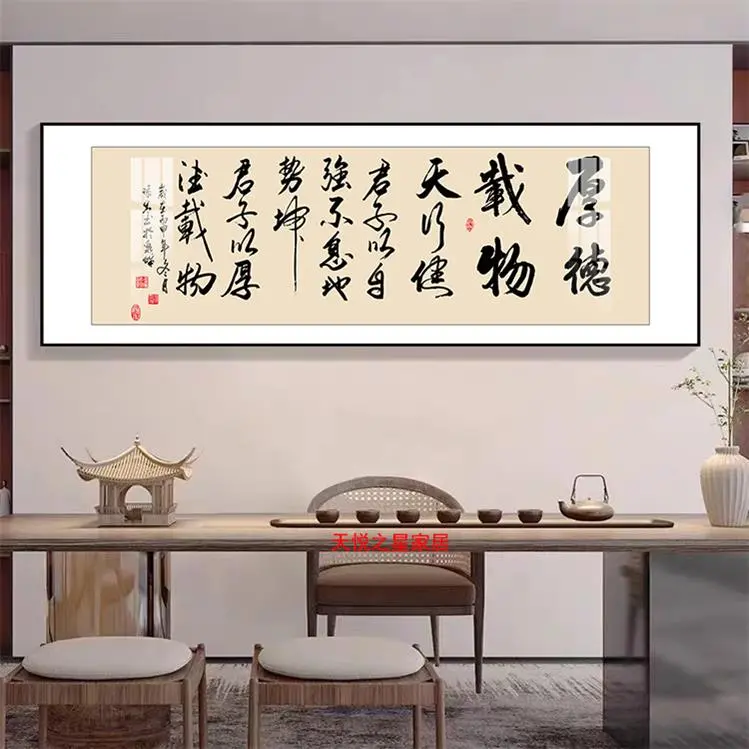 厚德
載物
天行健
君子以自
強不息地
勢坤
君子以厚
德載物
歲在丙申年冬月
天悦之星家居